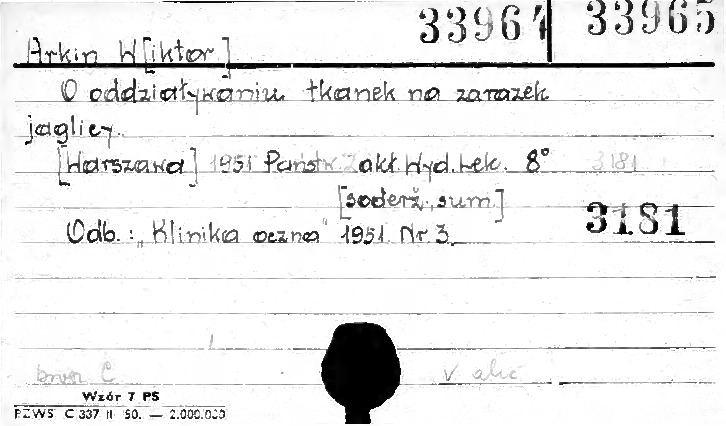 33964 33965
Arkin W[iktor]
O oddziaływaniu tkanek na zarazek
jaglicy.
[Warszawa] 1951 Państw. Zakł. Wyd. Lek. 8° 3181
[soderž., sum.]
Odb.: „Klinika oczna" 1951 Nr 3. 3181
Wzór 7 PS
PZWS C 337 II 50. — 2.000.000